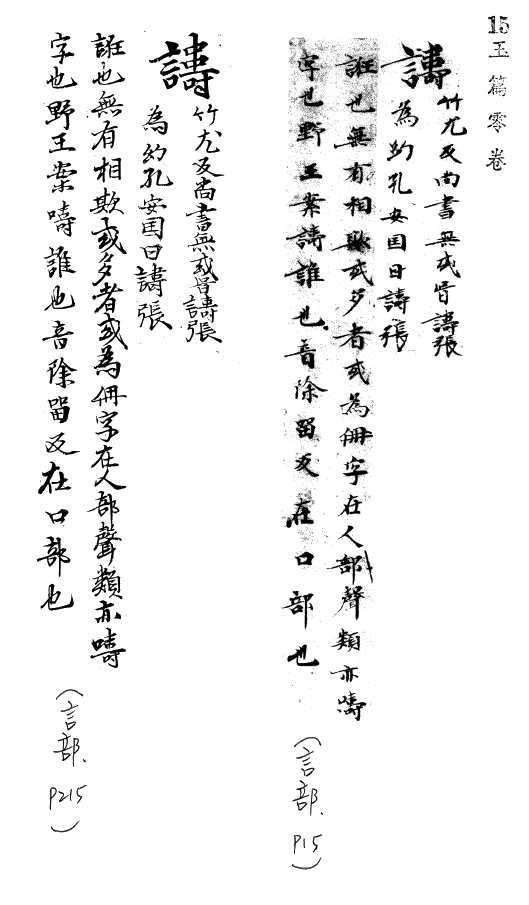 15玉篇零卷
譸
竹尤反尚書無或胥譸張
為幻孔安囯曰譸張
誑也無有相欺或多者或為侜字在人部聲類亦嚋
字也野王案譸誰也音除留反在口部也
(言部. P15)
譸
竹尤反尚書無或胥譸張
為幻孔安囯曰譸張
誑也無有相欺或多者或為侜字在人部聲類亦嚋
字也野王案嚋誰也音除留反在口部也
(言部. P215)